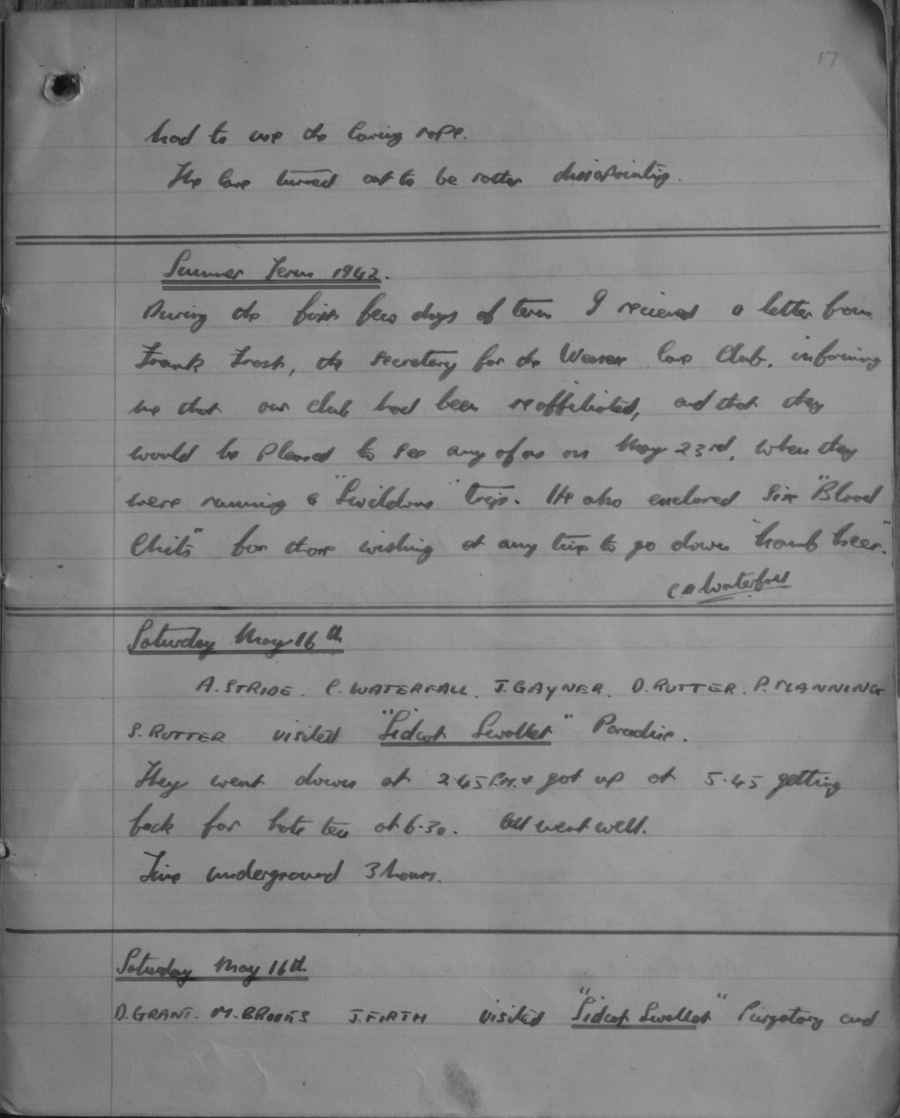 17
had to use the caving rope.
The Cave turned out to be rather dissapointing.
Summer Term 1942.
During the first few days of term I recieved a letter from
Frank Frost, the secretary for the Wessex Cave Club, informing
me that our club had been reaffiliated, and that they
would be pleased to see any of us on May 23rd, when they
were running a "Swildons" trip. He also enclosed six "Blood
Chits" for those wishing at any time to go down
C Waterfall
Saturday May 16th
A. STRIDE. C. WATERFALL. J. GAYNER. D. RUTTER. P. MANNING
S. RUTTER visited "Sidcot Swallet" Paradise.
They went down at 2.45 P.M. & got up at 5.45 getting
back for late tea at 6.30. All went well.
Time underground 3 hours.
Saturday May 16th
D. GRANT. M. BROOKS J. FIRTH visited "Sidcot Swallet" Purgatory and